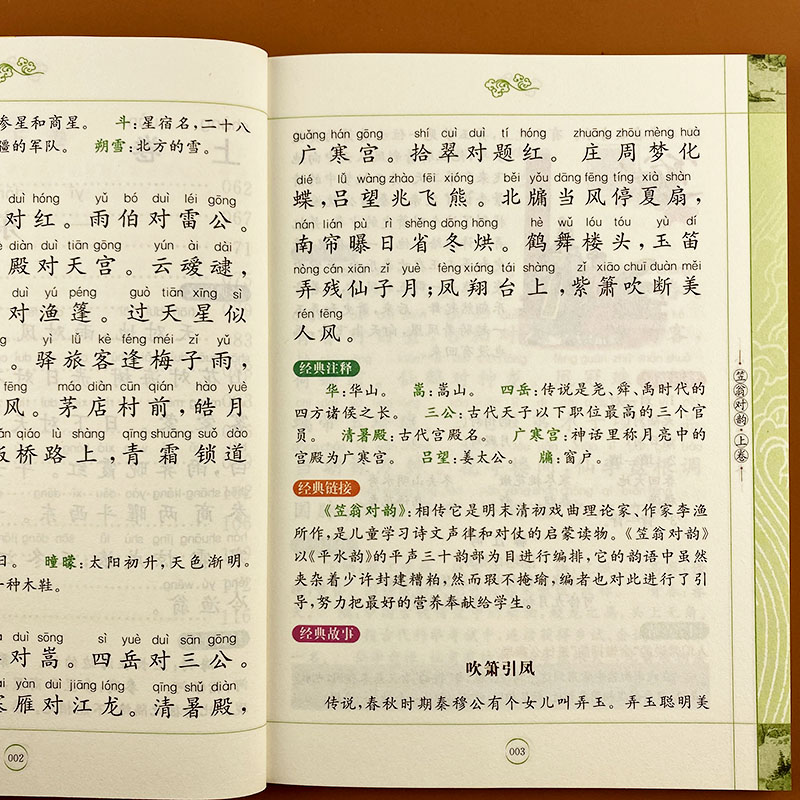 参星和商星。 斗:星宿名,二十八
疆的军队。 朔雪:北方的雪。
duì hóng yǔ bó duì léi gōng
对红。雨伯对雷公。
diàn duì tiān gōng yún ài dài
殿对天宫。云叆叇,
duì yú péng guò tiān xīng sì
对渔篷。过天星似
yì lǚ kè féng méi zǐ yǔ
。驿旅客逢梅子雨,
fēng máo diàn cūn qián hào yuè
风。茅店村前,皓月
qiáo lù shàng qīng shuāng suǒ dào
板桥路上,青霜锁道
曈曚:太阳初升,天色渐明。
一种木鞋。
duì sōng sì yuè duì sān gōng
对嵩。四岳对三公。
yàn duì jiāng lóng qīng shǔ diàn
寒雁对江龙。清暑殿,
002
guǎng hán gōng shí cuì duì tí hóng zhuāng zhōu mèng huà
广寒宫。拾翠对题红。庄周梦化
dié lǚ wàng zhào fēi xióng běi yǒu dāng fēng tíng xià shàn
蝶,吕望兆飞熊。北牖当风停夏扇,
nán lián pù rì shěng dōng hōng hè wǔ lóu tóu yù dí
南帘曝日省冬烘。鹤舞楼头,玉笛
nòng cán xiān zǐ yuè fèng xiáng tái shàng zǐ xiāo chuī duàn měi
弄残仙子月;凤翔台上,紫箫吹断美
rén fēng
人风。
经典注释
华:华山。 嵩:嵩山。 四岳:传说是尧、舜、禹时代的
四方诸侯之长。 三公:古代天子以下职位最高的三个官
员。 清暑殿:古代宫殿名。 广寒宫:神话里称月亮中的
宫殿为广寒宫。 吕望:姜太公。 牖:窗户。
经典链接
《笠翁对韵》:相传它是明末清初戏曲理论家、作家李渔
所作,是儿童学习诗文声律和对仗的启蒙读物。《笠翁对韵》
以《平水韵》的平声三十韵部为目进行编排,它的韵语中虽然
夹杂着少许封建糟粕,然而瑕不掩瑜,编者也对此进行了引
导,努力把最好的营养奉献给学生。
经典故事
吹箫引凤
传说,春秋时期秦穆公有个女儿叫弄玉。弄玉聪明美
003
笠翁对韵·上卷